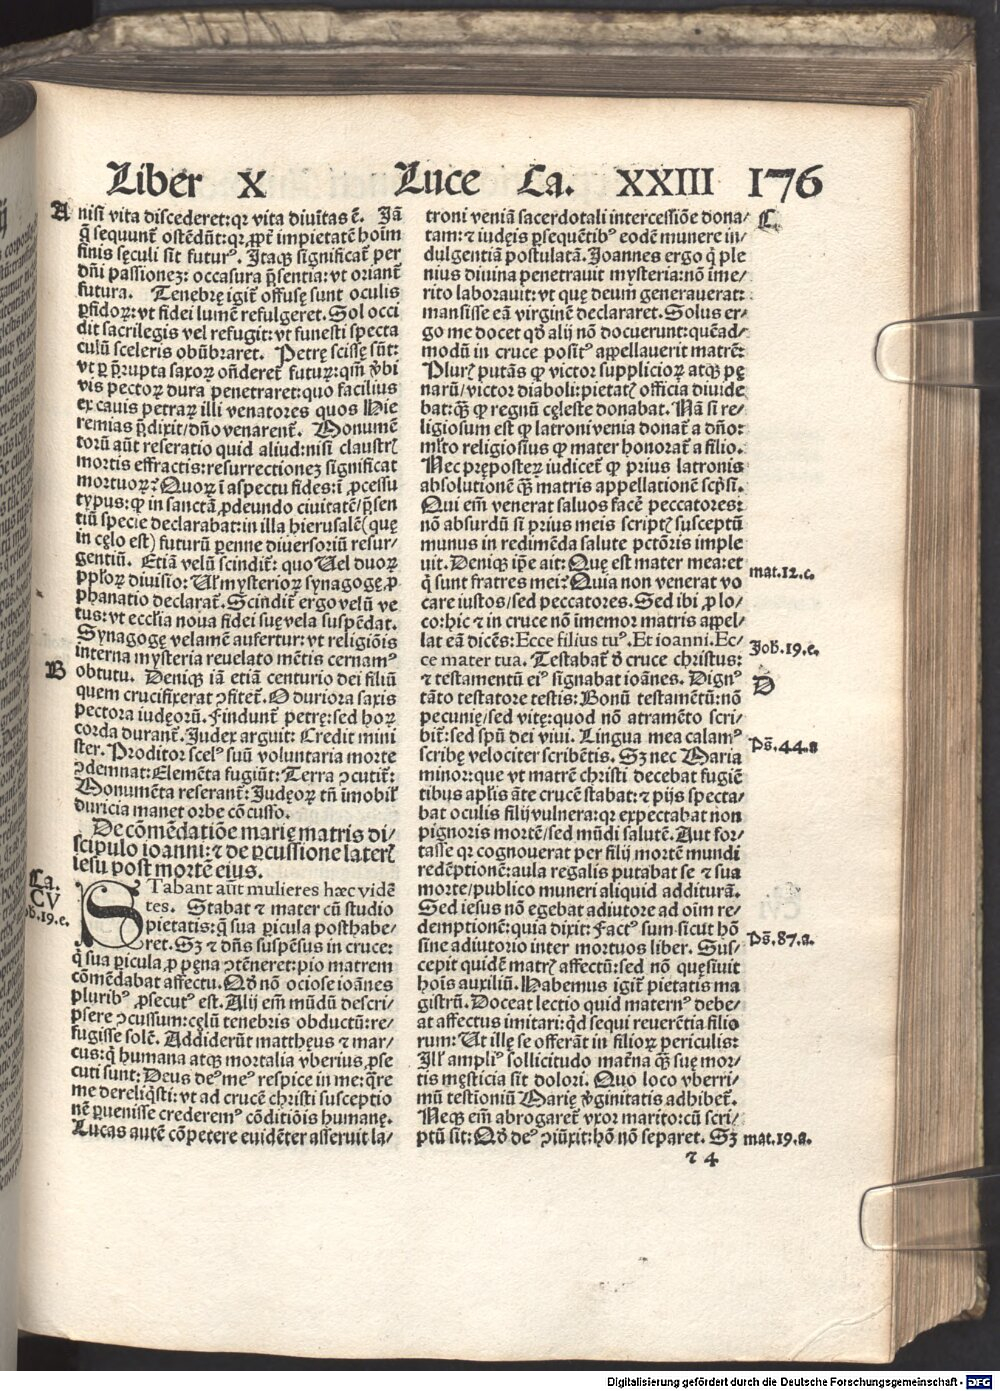 Liber X Luce Ca. XXIII 176
A nisi vita discederet: qꝛ vita diuĩtas ẽ. Jã
q̃ sequunt̃ ostẽdũt: qꝛ ꝓpt̃ impietatẽ hoĩm
finis sęculi sit futurꝰ. Itaqꝫ significat̃ per
dñi passionez: occasura p̃sentia: vt oriant̃
futura. Tenebrę igit̃ offusę sunt oculis
ꝑfidoꝝ: vt fidei lumẽ refulgeret. Sol occi
dit sacrilegis vel refugit: vt funesti specta
culũ sceleris obũbraret. Petrę scissę sũt:
vt ꝑ p̃rupta saxoꝝ oñderet̃ futuꝝ: qm̃ v̾bi
vis pectoꝝ dura penetraret: quo facilius
ex cauis petraꝝ illi venatores quos Hie
remias p̃dixit / dño venarent̃. Monumẽ
torũ aũt reseratio quid aliud: nisi claustrꝭ
mortis effractis: resurrectionez significat
mortuoꝝ? Quoꝝ ĩ aspectu fides: ĩ ꝓcessu
typus: ꝙ in sanctã ꝓdeundo ciuitatẽ / p̃sen
tiũ specie declarabat: in illa hierusalẽ (quę
in cęlo est) futurũ ꝑenne diuersoriũ resur-
gentiũ. Etiã velũ scindit̃: quo Uel duoꝝ
pploꝝ diuisio: Ul̃ mysterioꝝ synagogę ꝓ
phanatio declarat̃. Scindit̃ ergo velũ ve
tus: vt ecclĩa noua fidei suę vela suspẽdat.
Synagogę velamẽ aufertur: vt religiõis
interna mysteria reuelato mẽtis cernamꝰ
B obtutu. Deniqꝫ iã etiã centurio dei filiũ
quem crucifixerat ꝯfitet̃. O duriora saxis
pectora iudęorũ. Findunt̃ petrę: sed hoꝝ
corda durant̃. Judex arguit: Credit mini
ster. Proditor scelꝰ suũ voluntaria morte
ꝯdemnat: Elemẽta fugiũt: Terra ꝯcutit̃:
Monumẽta reserant̃: Judęoꝝ tñ ĩmobilꝭ
duricia manet orbe cõcusso.
De cõmẽdatiõe marię matris di/
scipulo ioanni: ⁊ de ꝑcussione laterꝭ
iesu post mortẽ eius.
Ca.
CV
ob.19.e.
STabant aũt mulieres hæc vidẽ
tes. Stabat ⁊ mater cũ studio
pietatis: q̃ sua ꝑicula posthabe/
ret. Sꝫ ⁊ dñs suspẽsus in cruce:
q̃ sua ꝑicula ꝓ pęna ꝯtẽneret: pio matrem
cõmẽdabat affectu. Qd̾ nõ ociose ioãnes
pluribꝰ ꝓsecutꝰ est. Alij em̃ mũdũ descri/
psere ꝯcussum: cęlũ tenebris obductũ: re/
fugisse solẽ. Addiderũt matthęus ⁊ mar/
cus: q̃ humana atqꝫ mortalia vberius ꝓse
cuti sunt: Deus deꝰ meꝰ respice in me: q̃re
me dereliq̃sti: vt ad crucẽ christi susceptio
nẽ ꝑuenisse crederemꝰ cõditiõis humanę.
Lucas autẽ cõpetere euidẽter asseruit la/
troni veniã sacerdotali intercessiõe dona/ C
tam: ⁊ iudęis ꝑsequẽtibꝰ eodẽ munere in/
dulgentiã postulatã. Joannes ergo q̃ ple
nius diuina penetrauit mysteria: nõ ime/
rito laborauit: vt quę deum̃ generauerat:
mansisse eã virginẽ declararet. Solus er-
go me docet qd̾ alij nõ docuerunt: quẽad/
modũ in cruce positꝰ appellauerit matrẽ:
Plurꝭ putãs ꝙ victor supplicioꝝ atqꝫ pę
narũ / victor diaboli: pietatꝭ officia diuide
bat: q̃ꝫ ꝙ regnũ cęleste donabat. Nã si re/
ligiosum est ꝙ latroni venia donat̃ a dño:
ml̃to religiosius ꝙ mater honorat̃ a filio.
Nec pręposteꝝ iudicet̃ ꝙ prius latronis
absolutionẽ q̃ꝫ matris appellationẽ scp̃si.
Qui em̃ venerat saluos facẽ peccatores:
nõ absurdũ si prius meis scriptꝭ susceptũ
munus in redimẽda salute pctõris imple
uit. Deniqꝫ ip̃e ait: Quę est mater mea: et mat.12.c.
q̃ sunt fratres mei? Quia non venerat vo
care iustos / sed peccatores. Sed ibi ꝓ lo/
co: hic ⁊ in cruce nõ ĩmemor matris appel/
lat eã dicẽs: Ecce filius tuꝰ. Et ioanni. Ec- Joh.19.e.
ce mater tua. Testabat̃ d̾ cruce christus:
⁊ testamentũ eiꝰ signabat ioãnes. Dignꝰ D
tãto testatore testis: Bonũ testamẽtũ: nõ
pecunię / sed vitę: quod nõ atramẽto scri/
bit̃: sed spũ dei viui. Lingua mea calamꝰ Ps̃.44.a
scribę velociter scribẽtis. Sꝫ nec Maria
minor: que vt matrẽ christi decebat fugiẽ
tibus apl̃is ãte crucẽ stabat: ⁊ pijs specta/
bat oculis filij vulnera: qꝛ expectabat non
pignoris mortẽ / sed mũdi salutẽ. Aut for/
tasse qꝛ cognouerat per filij mortẽ mundi
redẽptionẽ: aula regalis putabat se ⁊ sua
morte / publico muneri aliquid additurã.
Sed iesus nõ egebat adiutore ad oĩm re/
demptionẽ: quia dixit: Factꝰ sum sicut hõ Ps̃.87.a.
sine adiutorio inter mortuos liber. Sus/
cepit quidẽ matrꝭ affectũ: sed nõ quęsiuit
hoĩs auxiliũ. Habemus igit̃ pietatis ma
gistrũ. Doceat lectio quid maternꝰ debe/
at affectus imitari: qd̾ sequi reuerẽtia filio
rum: Ut illę se offerãt in filioꝝ periculis:
Jllꝭ ampliꝰ sollicitudo mat̃na q̃ꝫ suę mor/
tis męsticia sit dolori. Quo loco vberri/
mũ testioniũ Marię v̾ginitatis adhibet̃.
Neqꝫ em̃ abrogaret̃ vxor marito: cũ scri/
ptũ sit: Qd̾ deꝰ ꝯiũxit: hõ nõ separet. Sꝫ mat.19.a.
⁊ 4
Digitalisierung gefördert durch die Deutsche Forschungsgemeinschaft - DFG